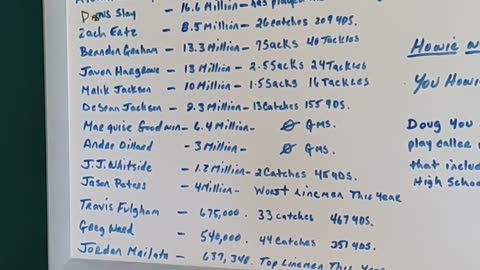 Slay - 16.6 Million - has played
Zach Eatz - 8.5 Million - 26 Catches 209 YDS.
Brandon Graham - 13.3 Million - 7 Sacks 40 Tackles
Javon Hargrove - 13 Million - 2.5 Sacks 24 Tackles
Malik Jackson - 10 Million - 1.5 Sacks 16 Tackles
DeSean Jackson - 9.3 Million - 13 Catches 155 YDS.
Marquise Goodwin - 6.4 Million - Ø GMS.
Andre Dillard - 3 Million - Ø GMS.
J.J. Whitside - 1.2 Million - 2 Catches 45 YDS.
Jason Peters - 4 Million - Worst Linemen This Year
Travis Fulgham - 675,000. 33 Catches 467 YDS.
Greg Ward - 540,000. 44 Catches 351 YDS.
Jordan Mailata - 637,348. Top Linemen This Year
Howie
You Howie
Doug You
play caller
that includ
High School